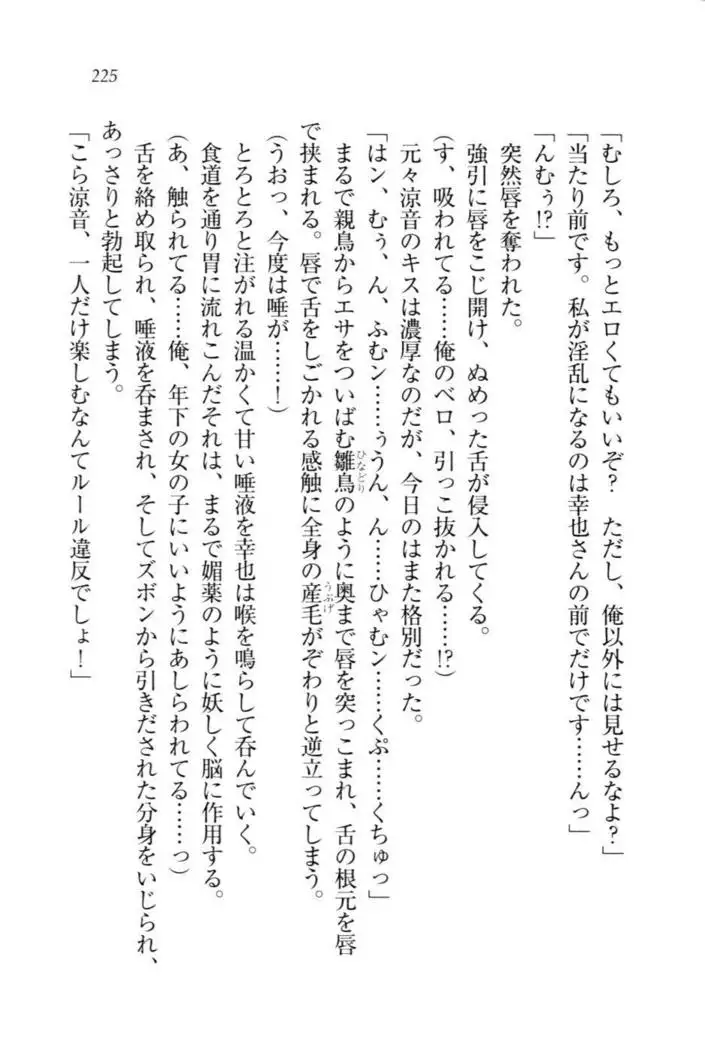 225
「むしろ、もっとエロくてもいいぞ？　ただし、俺以外には見せるなよ？」
「当たり前です。私が淫乱になるのは幸也さんの前でだけです……んっ」
「んむぅ!?」
突然唇を奪われた。
強引に唇をこじ開け、ぬめった舌が侵入してくる。
(す、吸われてる……俺のベロ、引っこ抜かれる……!?)
元々涼音のキスは濃厚なのだが、今日のはまた格別だった。
「はン、むぅ、ん、ふむン……ぅうん、ん……ひゃむン……くぷ……くちゅっ」
まるで親鳥からエサをついばむ雛鳥のように奥まで唇を突っこまれ、舌の根元を唇
で挟まれる。唇で舌をしごかれる感触に全身の産毛がぞわりと逆立ってしまう。
(うおっ、今度は唾が……！)
とろとろと注がれる温かくて甘い唾液を幸也は喉を鳴らして呑んでいく。
食道を通り胃に流れこんだそれは、まるで媚薬のように妖しく脳に作用する。
(あ、触られてる……俺、年下の女の子にいいようにあしらわれてる……っ)
舌を絡め取られ、唾液を呑まされ、そしてズボンから引きだされた分身をいじられ、
あっさりと勃起してしまう。
「こら涼音、一人だけ楽しむなんてルール違反でしょ！」